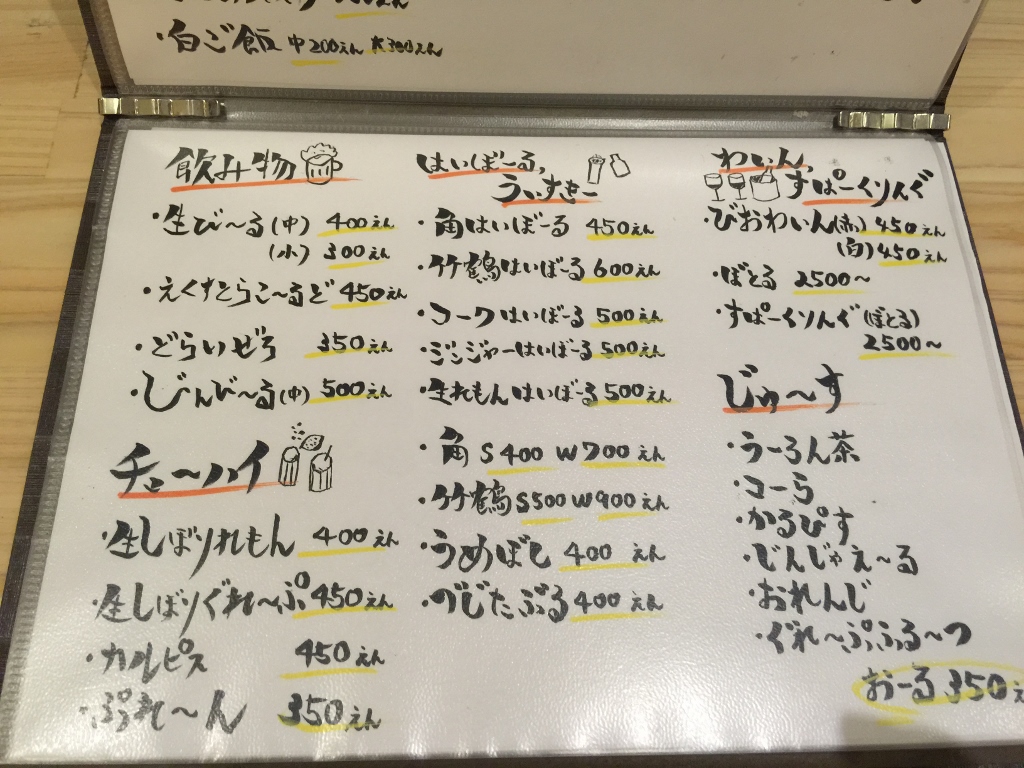 ・白ご飯 中200えん 大300えん
飲み物
・生び〜る(中) 400えん
(小) 300えん
・えくすとらこ〜るど 450えん
・どらいぜろ 350えん
・じんじ〜る(中) 500えん
チューハイ
・生しぼりれもん 400えん
・生しぼりぐれ〜ぷ 450えん
・カルピス 450えん
・ぷれ〜ん 350えん
はいぼーる,
うぃすきー
・角はいぼーる 450えん
・竹鶴はいぼ〜る 600えん
・コークはいぼーる 500えん
・ジンジャーはいぼーる 500えん
・生れもんはいぼーる 500えん
・角 S400 W700えん
・竹鶴 S500 W900えん
・うめぼし 400えん
・のじたぷる 400えん
わいん,
すぱーくりんぐ
・びおわいん(赤) 450えん
(白) 450えん
・ぼとる 2500〜
・すぱーくりんぐ(ぼとる)
2500〜
じゅ〜す
・うーろん茶
・コーら
・かるぴす
・じんじゃえ〜る
・おれんじ
・ぐれ〜ぷふる〜つ
おーる350え